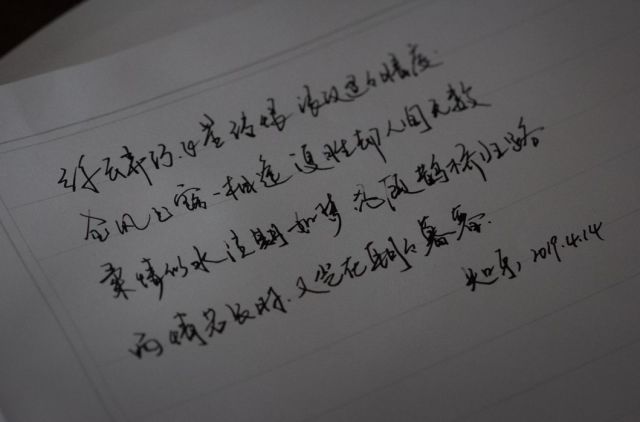 纤云弄巧，飞星传恨，银汉迢迢暗度
金风玉露一相逢，便胜却人间无数
柔情似水，佳期如梦，忍顾鹊桥归路
两情若久时，又岂在朝朝暮暮.
2019.4.14